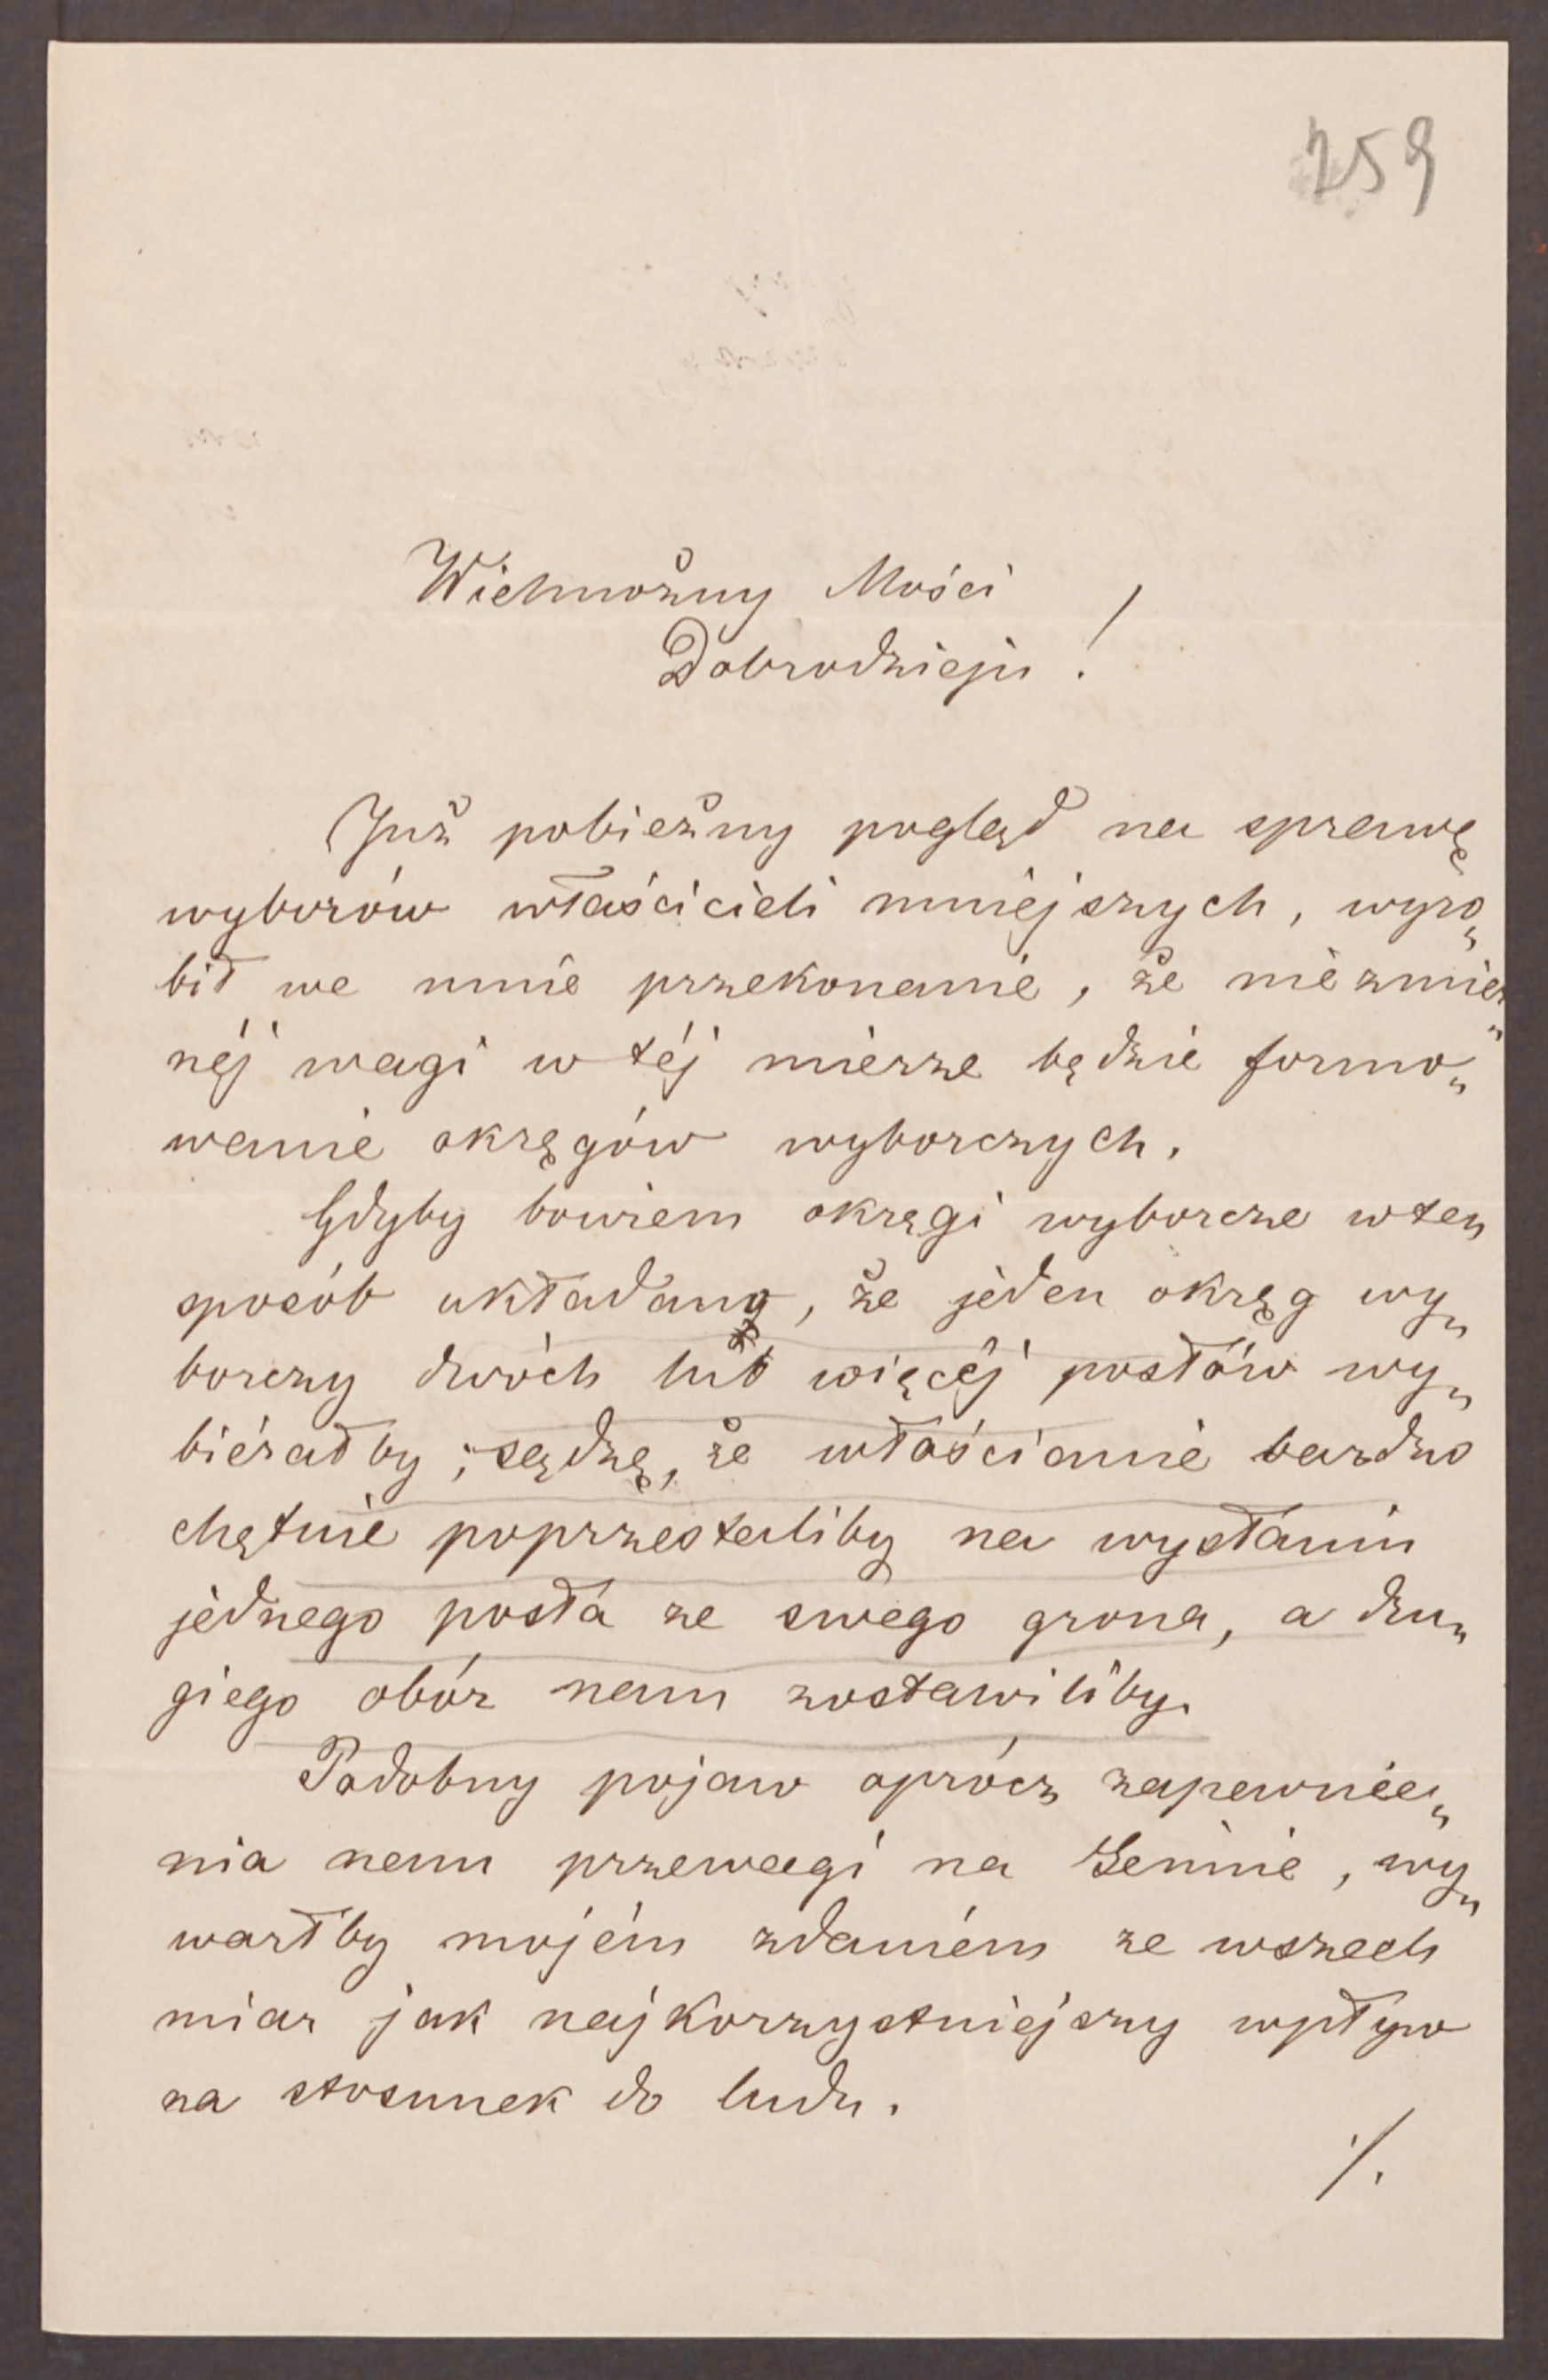 259
Wielmożny Mości
Dobrodzieju !
Już pobieżny pogląd na sprawę
wyborów właścicieli mniejszych, wyro„
bił we mnie przekonanie, że niezmier„
néj wagi w téj mierze będzie formo„
wanie okręgów wyborczych.
Gdyby bowiem okręgi wyborcze w ten
sposób układano, że jeden okręg wy„
borczy dwóch lub więcéj posłów wy„
biérałby; sądzę, że włościanie bardzo
chętnie poprzestaliby na wysłaniu
jednego posła ze swego grona, a dru„
giego obór nam zostawiliby.
Podobny pojaw oprócz zapewnie„
nia nam przewagi na Sejmie, wy„
warłby mojém zdaniém ze wszech
miar jak najkorzystniejszy wpływ
na stosunek do ludu.
·/.